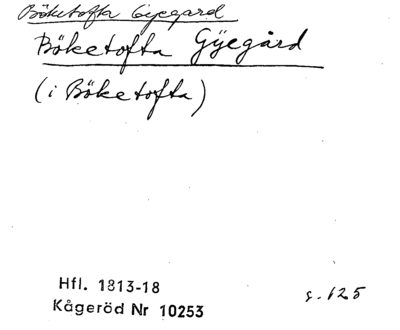 Böketofta Gyegård
Böketofta Gÿegård
(i Böketofta)
Hfl. 1813-18
Kågeröd Nr 10253
s. 125